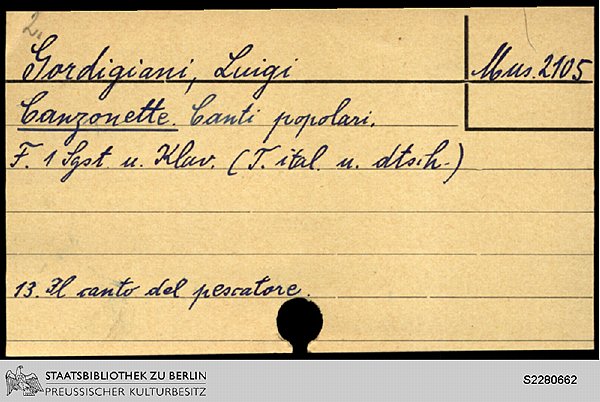 2.
Gordigiani, Luigi
Mus. 2105
Canzonette. Canti popolari.
F. 1 Sgst. u. Klav. (T. ital. u. dtsch.)
13. Il canto del pescatore.
STAATSBIBLIOTHEK ZU BERLIN
PREUSSISCHER KULTURBESITZ
S2280662